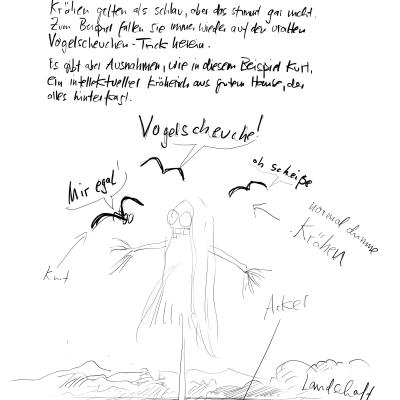 Krähen gelten als schlau, aber das stimmt gar nicht.
Zum Beispiel fallen sie immer wieder auf den uralten
Vogelscheuchen-Trick herein.
Es gibt aber Ausnahmen, wie in diesem Beispiel Kurt,
ein intellektueller Kräherich aus gutem Hause, der
alles hinterfragt.
Vogelscheuche!
oh scheiße
Mir egal!
normal dumme
Krähen
Kurt
Acker
Landschaft